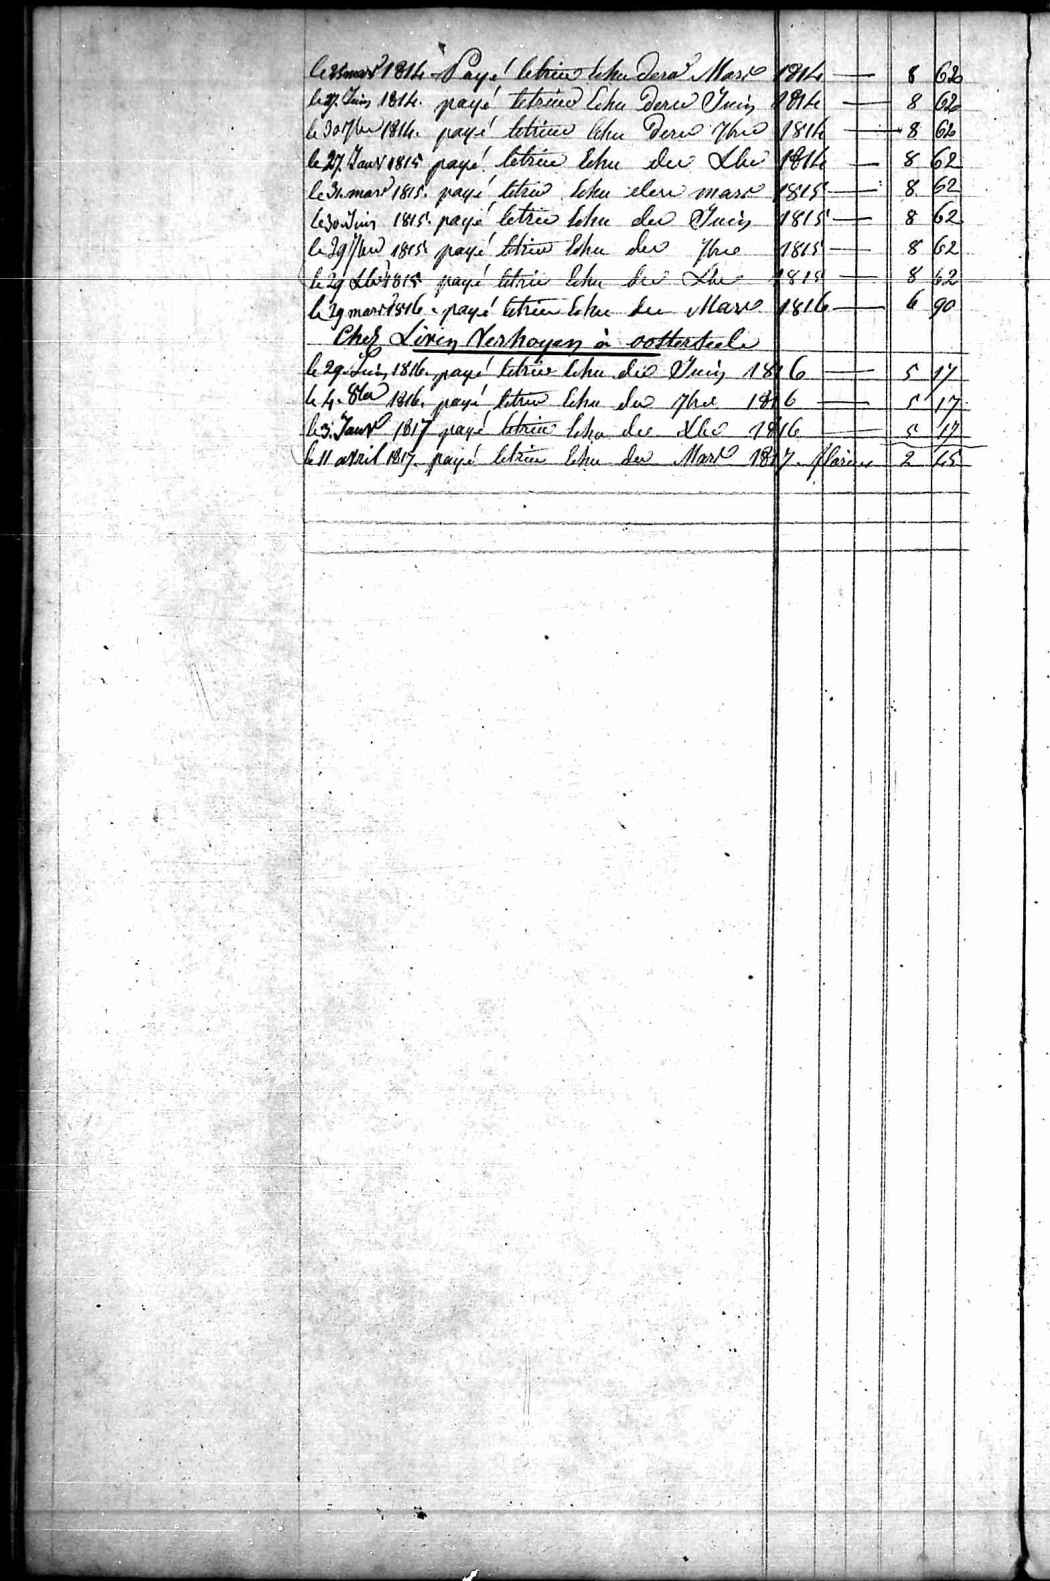 le 25 mars 1814 Payé letrim Echu dera Mars 1814 — 8 62
le 27 Juin 1814. payé letrim Echu deru Juin 1814 — 8 62
le 30 7bre 1814. payé letrim Echu deru 7bre 1814 — 8 62
le 27 Janv 1815 payé letrim Echu du Xbre 1814 — 8 62
le 31 mars 1815. payé letrim Echu deru mars 1815 — 8 62
le 30 Juin 1815. payé letrim Echu du Juin 1815 — 8 62
le 29 7bre 1815 payé letrim Echu du 7bre 1815 — 8 62
le 29 Xbre 1815 payé letrim Echu du Xbre 1815 — 8 62
le 29 mars 1816. payé letrim Echu du Mars 1816 — 6 90
Chez Livin Verhoyen à oosterseele
le 29 Juin 1816. payé letrim Echu du Juin 1816 — 5 17
le 4. 8bre 1816. payé letrim Echu du 7bre 1816 — 5 17
le 3. Janv 1817 payé letrim Echu du Xbre 1816 — 5 17
le 11 avril 1817. payé letrim Echu du Mars 1817. florins 2 45